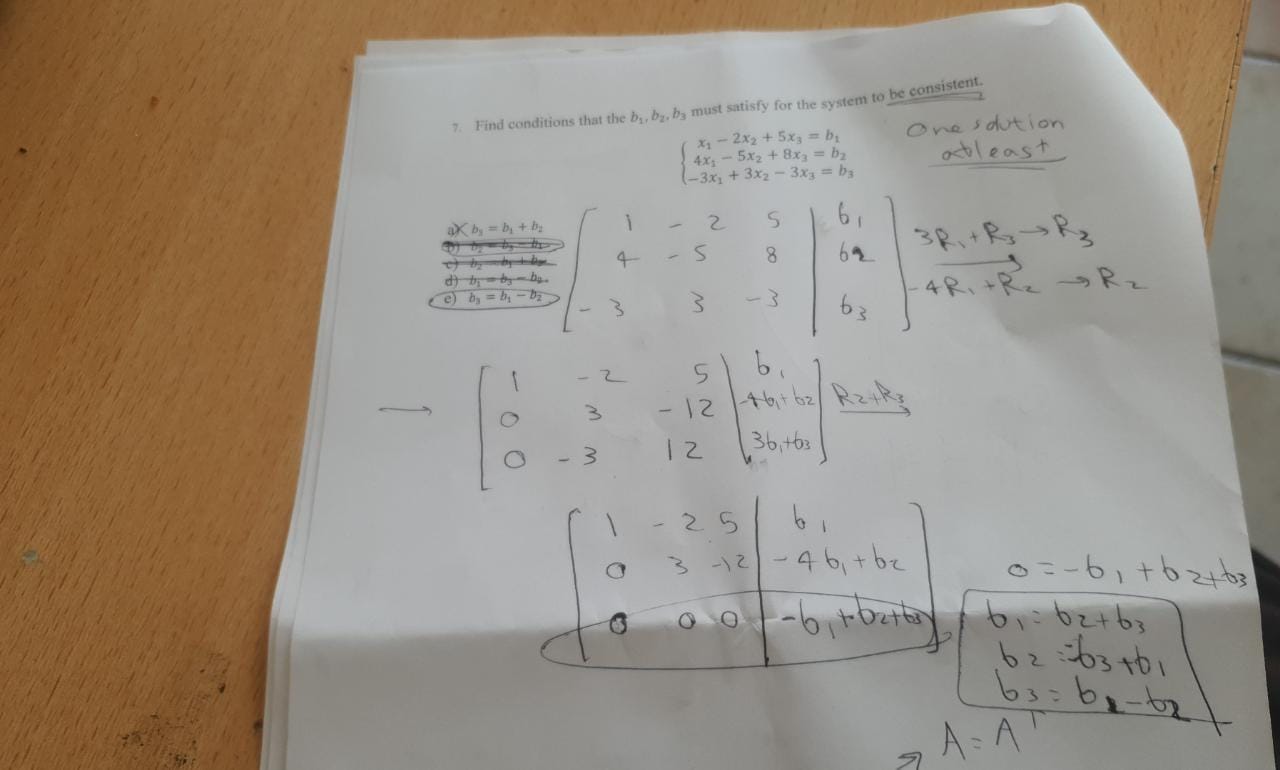 7. Find conditions that the b₁, b₂, b₃ must satisfy for the system to be consistent.
x₁ − 2x₂ + 5x₃ = b₁
4x₁ − 5x₂ + 8x₃ = b₂
−3x₁ + 3x₂ − 3x₃ = b₃
One solution
at least
a) b₃ = b₁ + b₂
b) b₂ = b₃ − b₁
c) b₂ = b₁ + b₃
d) b₁ = b₃ − b₂
e) b₃ = b₁ − b₂
1 -2 5 | b₁
4 -5 8 | b2
-3 3 -3 | b₃
3R₁+R₃→R₃
-4R₁+R₂ →R₂
→
1 -2 5 | b₁
0 3 -12 | -4b₁+b2
0 -3 12 | 3b₁+b3
R2+R3
1 -2 5 | b₁
0 3 -12 | -4b₁+b2
0 0 0 | -b₁+b2+b3
0=-b₁+b2+b3
b₁=b2+b3
b3=
A=A